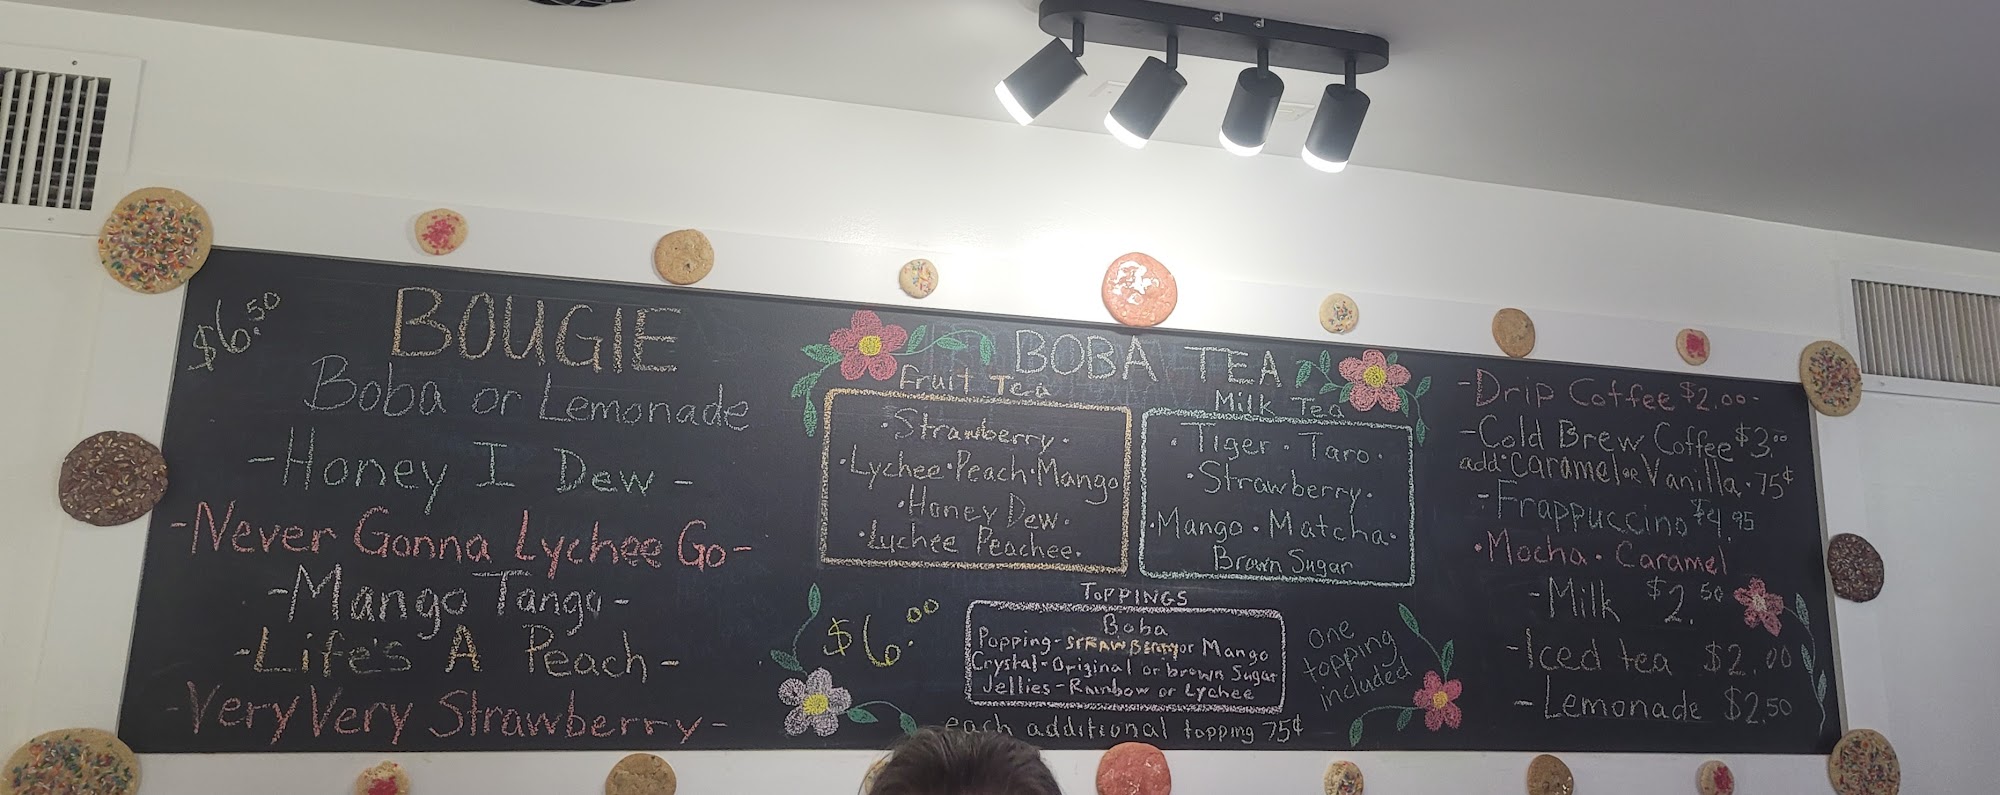 $6.50
BOUGIE
Boba or Lemonade
-Honey I Dew-
-Never Gonna Lychee Go-
-Mango Tango-
-Life's A Peach-
-Very Very Strawberry-
BOBA TEA
Fruit Tea
·Strawberry·
·Lychee·Peach·Mango
·Honey Dew·
·Lychee Peachee·
Milk Tea
·Tiger·Taro·
·Strawberry·
·Mango·Matcha·
Brown Sugar
$6.00
TOPPINGS
Boba
Popping-STRAWBERRY or Mango
Crystal-Original or brown Sugar
Jellies-Rainbow or Lychee
one
topping
included
each additional topping 75¢
-Drip Coffee $2.00-
-Cold Brew Coffee $3.00
add·Caramel or Vanilla·75¢
-Frappuccino $4.95
·Mocha·Caramel
-Milk $2.50
-Iced tea $2.00
-Lemonade $2.50